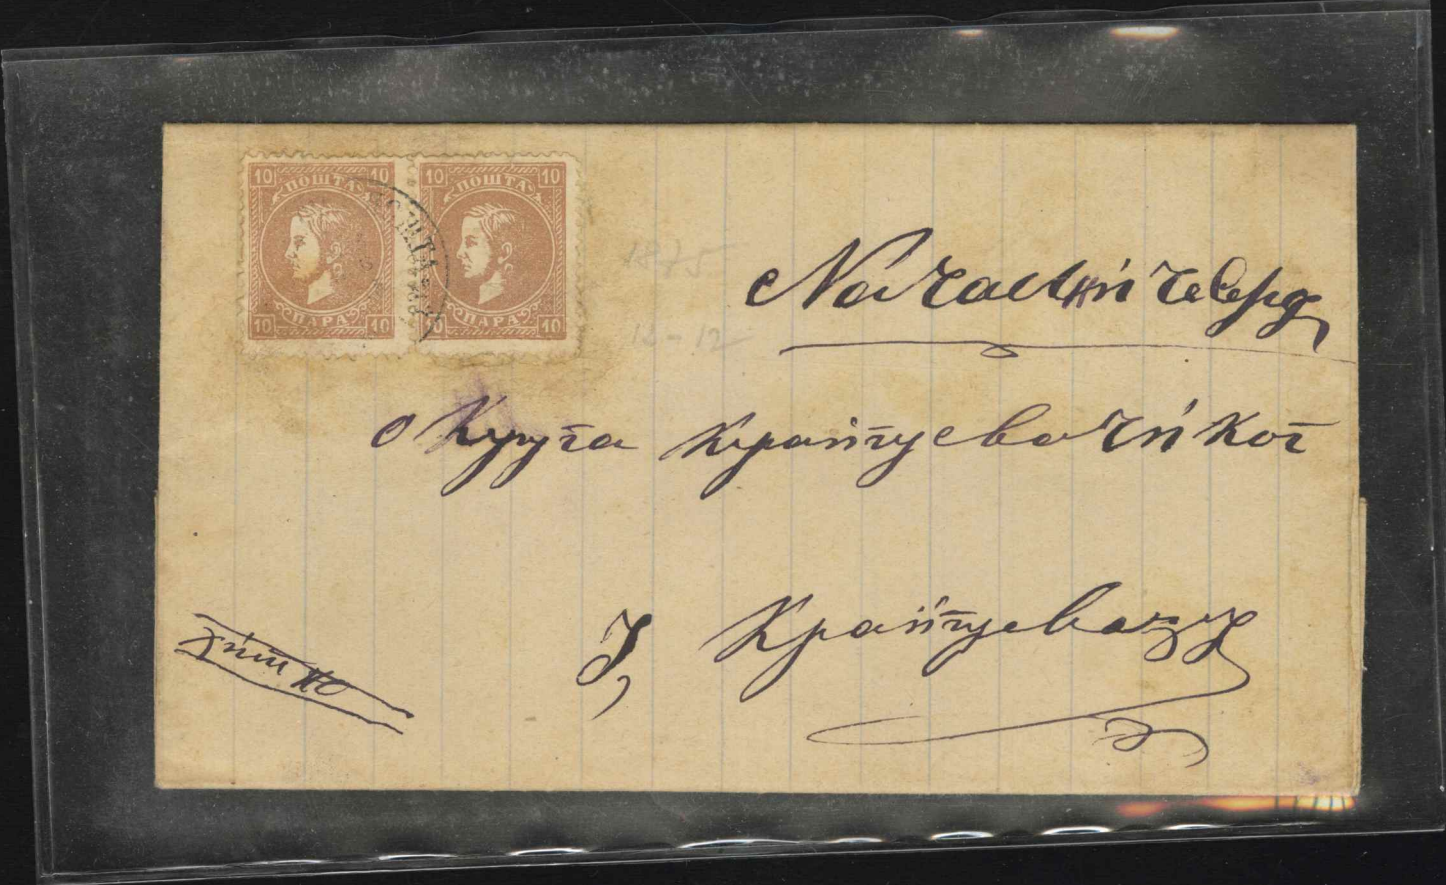 10 ПОШТА 10
10 ПАРА 10
10 ПОШТА 10
10 ПАРА 10
ПОШТА
1875
12-12
Округа Крагујевачког
У Крагујевацу
хитно